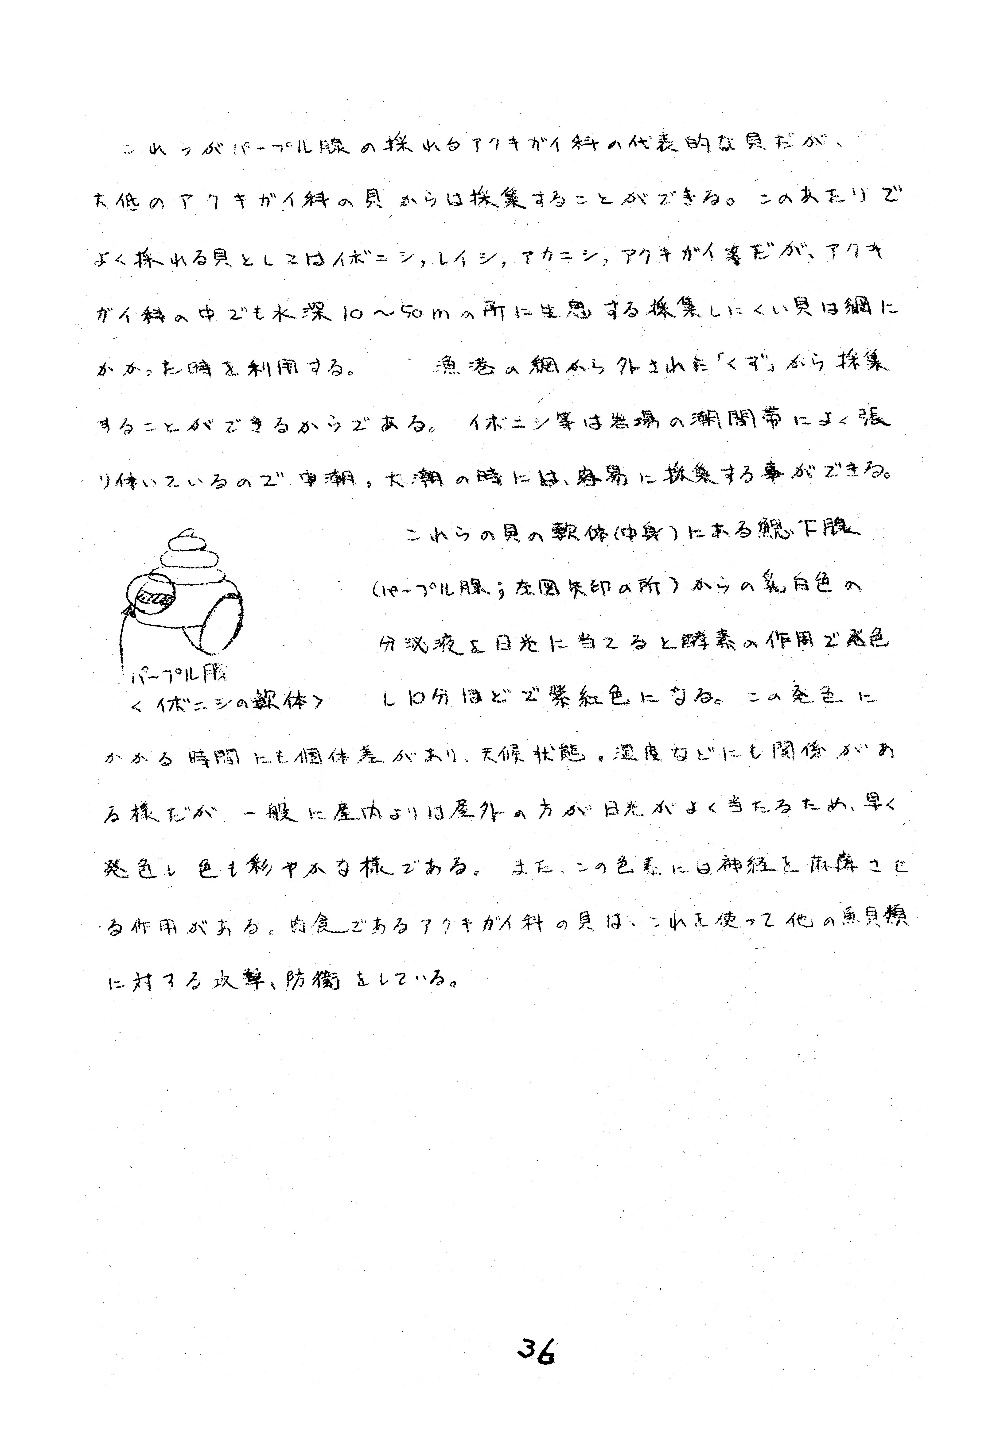 これらがパープル腺の採れるアクキガイ科の代表的な貝だが、
大低のアクキガイ科の貝からは採集することができる。このあたりで
よく採れる貝としてはイボニシ,レイシ,アカニシ,アクキガイ等だが、アクキ
ガイ科の中でも水深10〜50mの所に生息する採集しにくい貝は網に
かかった時を利用する。 漁港の網から外された「くず」から採集
することができるからである。イボニシ等は岩場の潮間帯によく張
り付いているので中潮,大潮の時には、容易に採集する事ができる。
これらの貝の軟体(中身)にある鰓下腺
(パープル腺;左図矢印の所)からの乳白色の
分泌液を日光に当てると酵素の作用で発色
し10分ほどで紫紅色になる。この発色に
パープル腺
<イボニシの軟体>
かかる時間にも個体差があり、天候状態,温度などにも関係があ
る様だが 一般に屋内よりは屋外の方が日光がよく当たるため、早く
発色し色も彩やかな様である。また、この色素には神経を麻痺させ
る作用がある。肉食であるアクキガイ科の貝は、これを使って他の魚貝類
に対する攻撃、防衛をしている。
36